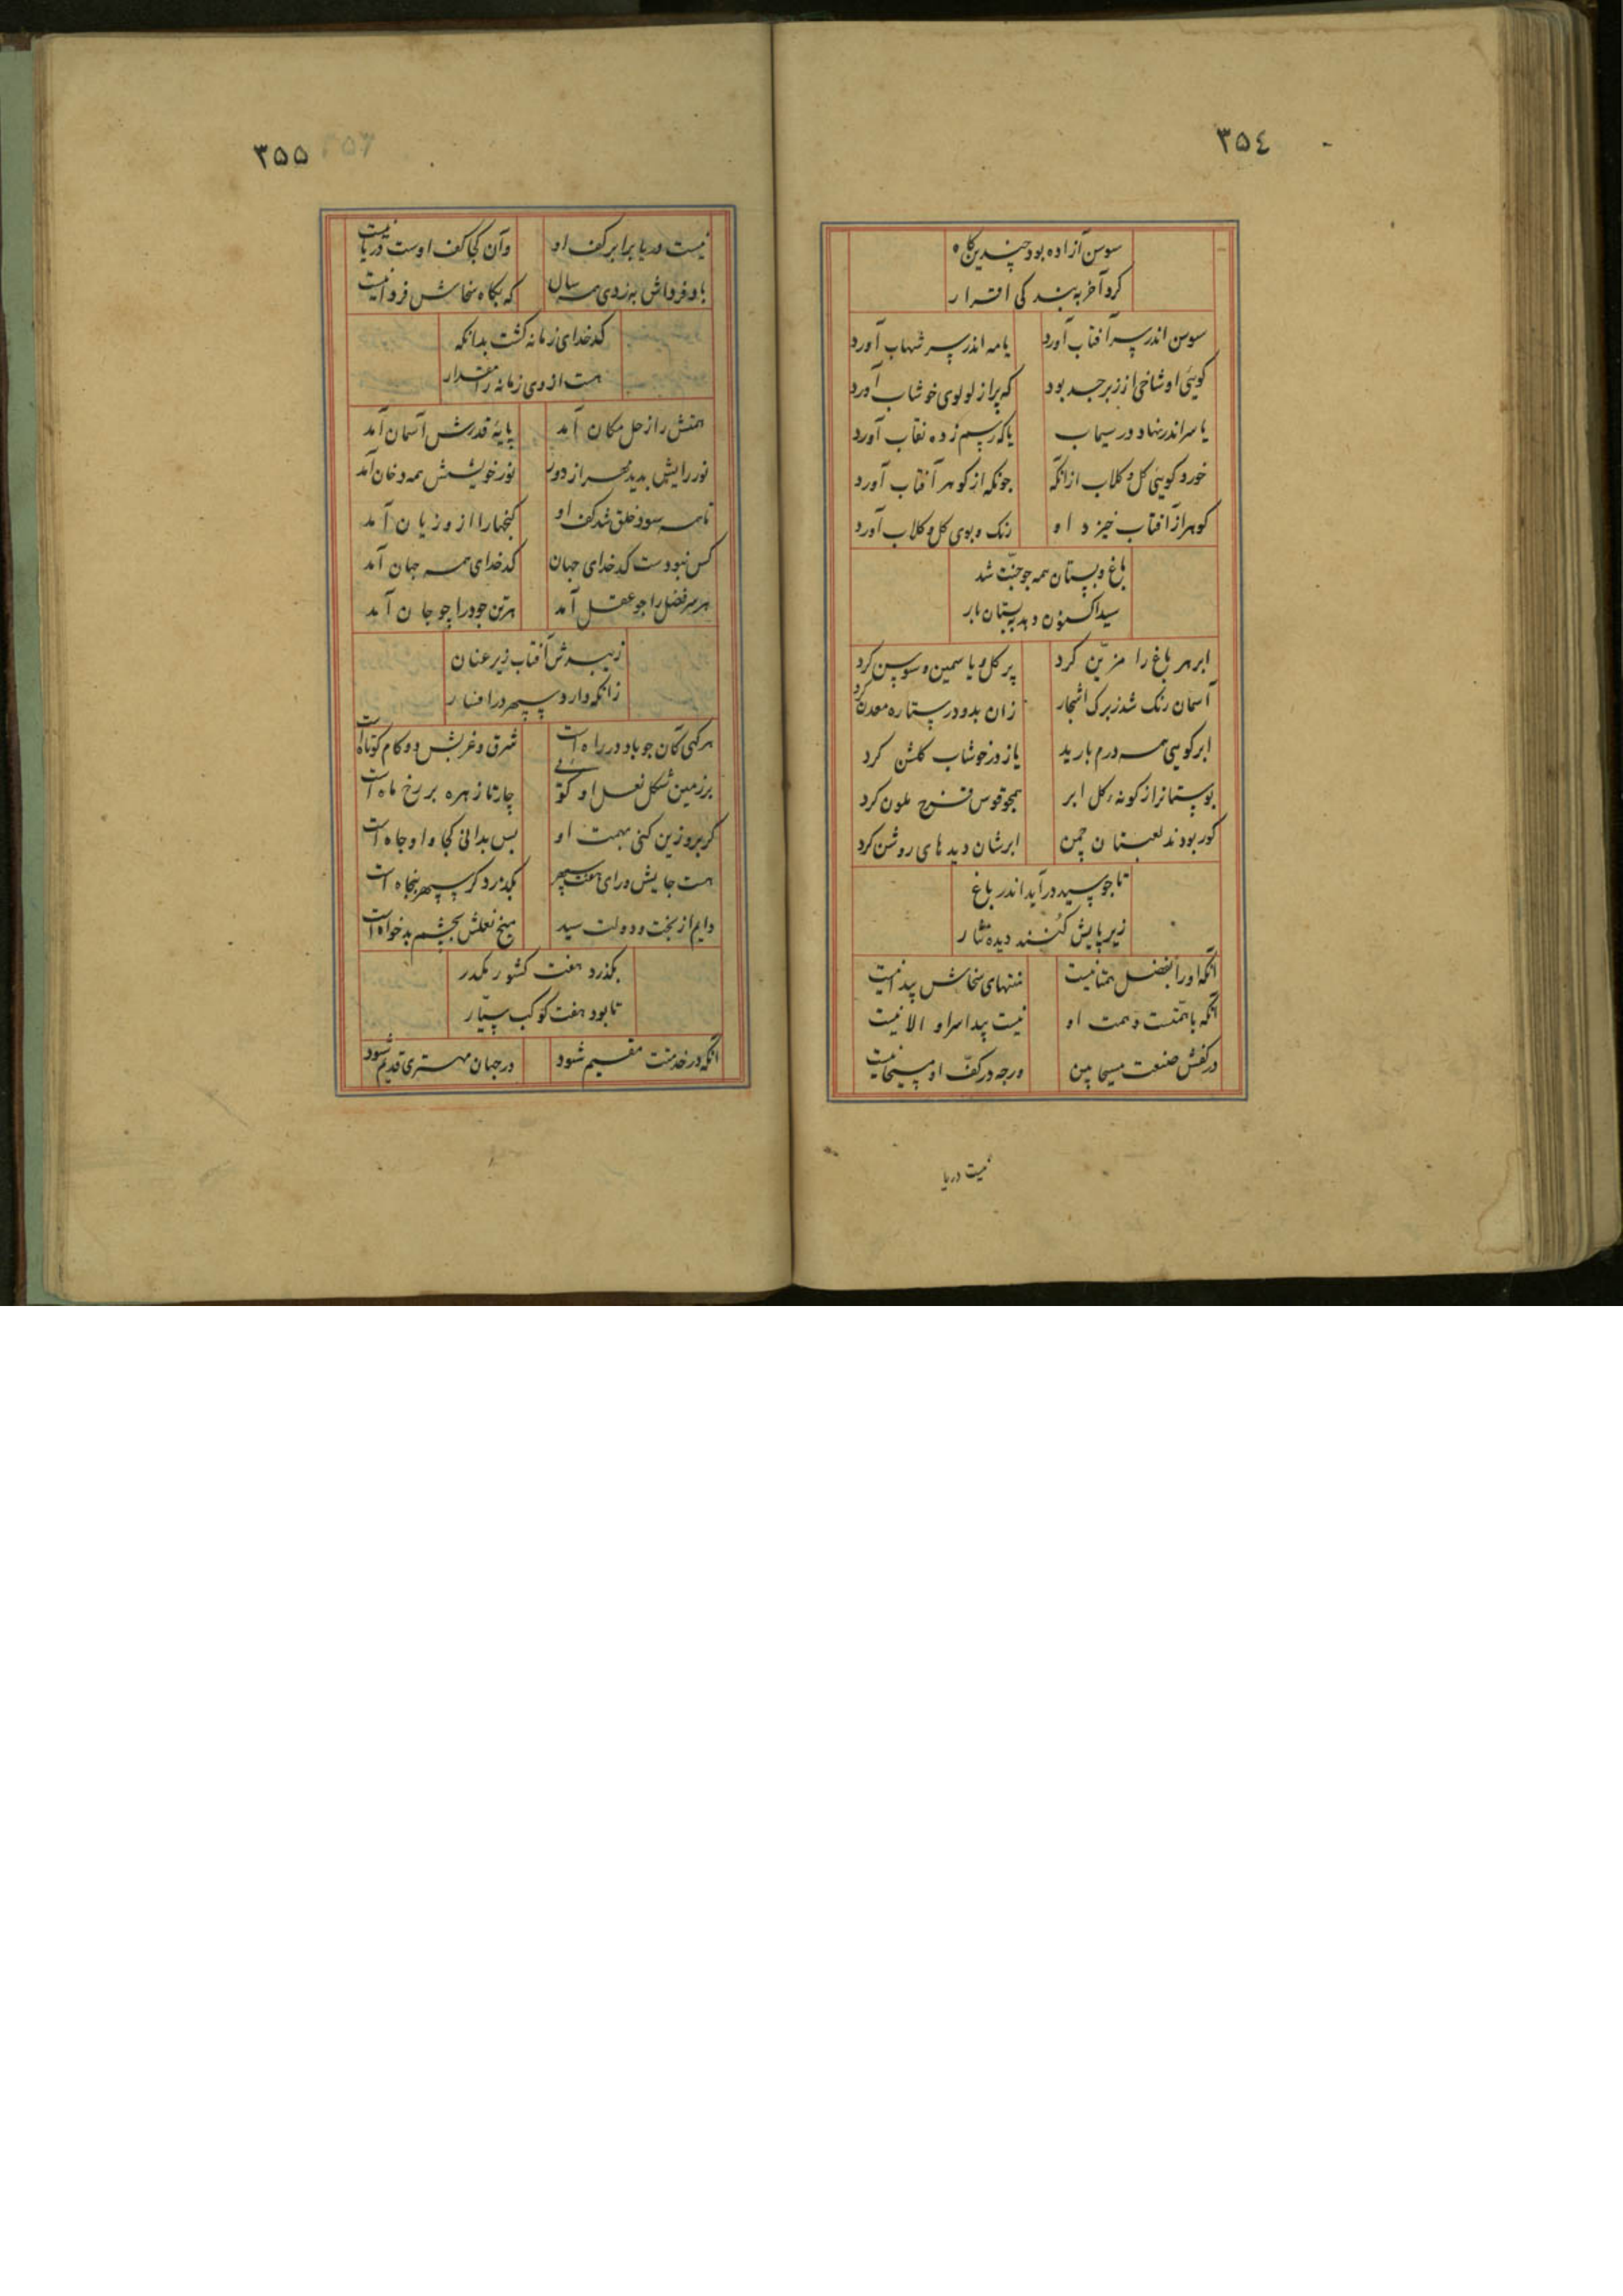 ٣٥٤
سوسن آزاده بود چندین گاه
کرد آخر به بندگی اقرار
سوسن اندر سر آفتاب آورد یا مه اندر سر شهاب آورد
کویئ او شاخی از زبرجد بود که پر از لولوی خوشاب آورد
یا سر اندر نهاد در سیماب یا که رسم زده نقاب آورد
خورد کویئ کل و کلاب ازانکه جونکه از کوهر آفتاب آورد
کوهر از آفتاب خیزد او رنک و بوی کل و کلاب آورد
باغ و بستان همه جو جنّت شد
سید اکنون دهد به بستان بار
ابر هر باغ را مزیّن کرد پر کل و یاسمین و سوسن کرد
آسمان رنک شد ز برک اشجار زان بدو در ستاره معدن کرد
ابر کویی همه درم بارید یا ز در خوشاب کلشن کرد
بوستانرا ز کونه کل ابر همجو قوس قزح ملون کرد
کور بودند لعبتان چمن ابرشان دیدهای روشن کرد
تا جو سید درآید اندر باغ
زیر پایش کُنند دیده نثار
آنکه او را بفضل همتا نیست منتهای سخاش پیدا نیست
آنکه با همّتست و همت او نیست پیدا سر او الا نیست
در کفش صنعت مسیحا بین ورچه در کفّ او مسیحا نیست
نیست دریا
٣٥٥
نیست دریا برابر کف او وآن کجا کف اوست دریا نیست
با وفرداش به ز دی همه سال که بکاه سخاش فردا نیست
کدخدای زمانه کشت بدانکه
هست از وی زمانه را مقدار
همتش را زحل مکان آمد پایهٔ قدرش آسمان آمد
نور رایش بدید بحر از دور نور خویشش همه دخان آمد
تا همه سود خلق شد کف او کنجها را ازو زیان آمد
کس نبودست کدخدای جهان کدخدای همه جهان آمد
هر سر فضل را جو عقل آمد هر تن جود را چو جان آمد
زیبدش آفتاب زیر عنان
زانکه دارد سپهر در افسار
مرکبی کان جو باد در راه است شرق و غربش دو کام کوتاه است
بر زمین شکل نعل او کویی چارتا زهره بر رخ ماه است
کر برو زین کنی بهمت او بس بدانی کجا و او جاه است
هست جایش ورای هفت سپهر بکذرد کر سپهر پنجاه است
دایم از بخت و دولت سید میخ نعلش بچشم بدخواه است
بکذرد هفت کشور یکدر
تا بود هفت کوکب سیّار
آنکه در خدمتت مقیم شود در جهان مهتری قدیم شود